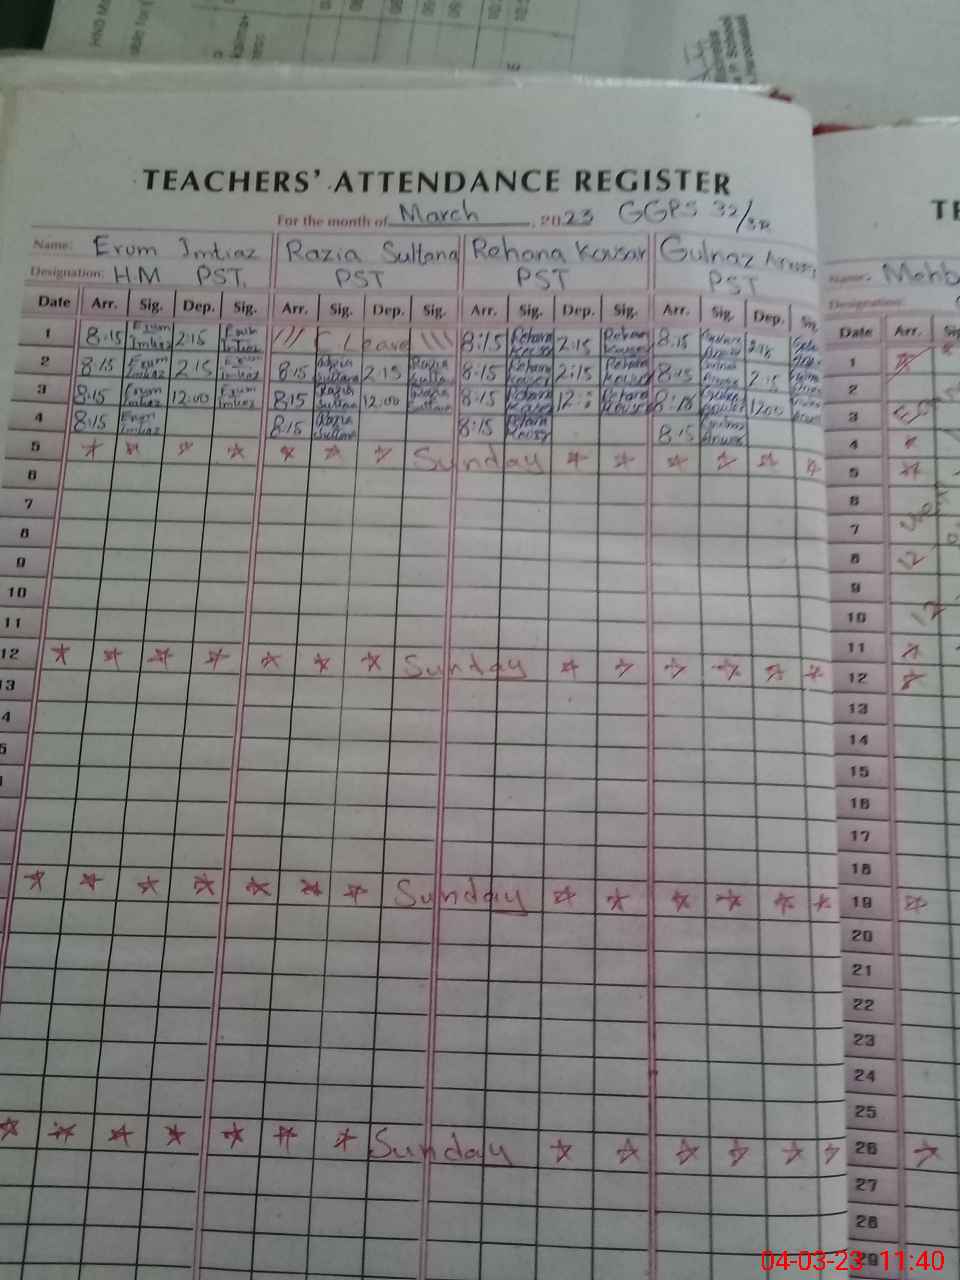 TEACHERS' ATTENDANCE REGISTER
For the month of March, 2023 GGPS 32/
Name: Erum Imtiaz Razia Sultana Rehana Kousar Gulnaz
Designation: H.M PST. PST PST PST
Date Arr. Sig. Dep. Sig. Arr. Sig. Dep. Sig. Arr. Sig. Dep. Sig. Arr. Sig. Dep. Sig.
1 8:15 Erum Imtiaz 2:15 Erum Imtiaz C. Leave 8:15 Rehana Kousar 2:15 Rehana Kousar 8:15 2:15
2 8:15 Erum Imtiaz 2:15 Erum Imtiaz 8:15 Razia Sultana 2:15 Razia Sultana 8:15 Rehana Kousar 2:15 Rehana Kousar 8:15 2:15
3 8:15 Erum Imtiaz 12:00 Erum Imtiaz 8:15 Razia Sultana 12:00 Razia Sultana 8:15 Rehana Kousar Rehana Kousar 8:15 12:00
4 8:15 Erum Imtiaz 8:15 Razia Sultana 8:15 Rehana Kousar 8:15
5 Sunday
6
7
8
9
10
11
12 Sunday
13
4
5
Sunday
Sunday
TE
Name: Mehb
Designation:
Date Arr. Sig
1
2
3
4
5
6
7
8 12
9
10
11
12
13
14
15
16
17
18
19
20
21
22
23
24
25
26
27
28
29
04-03-23 11:40